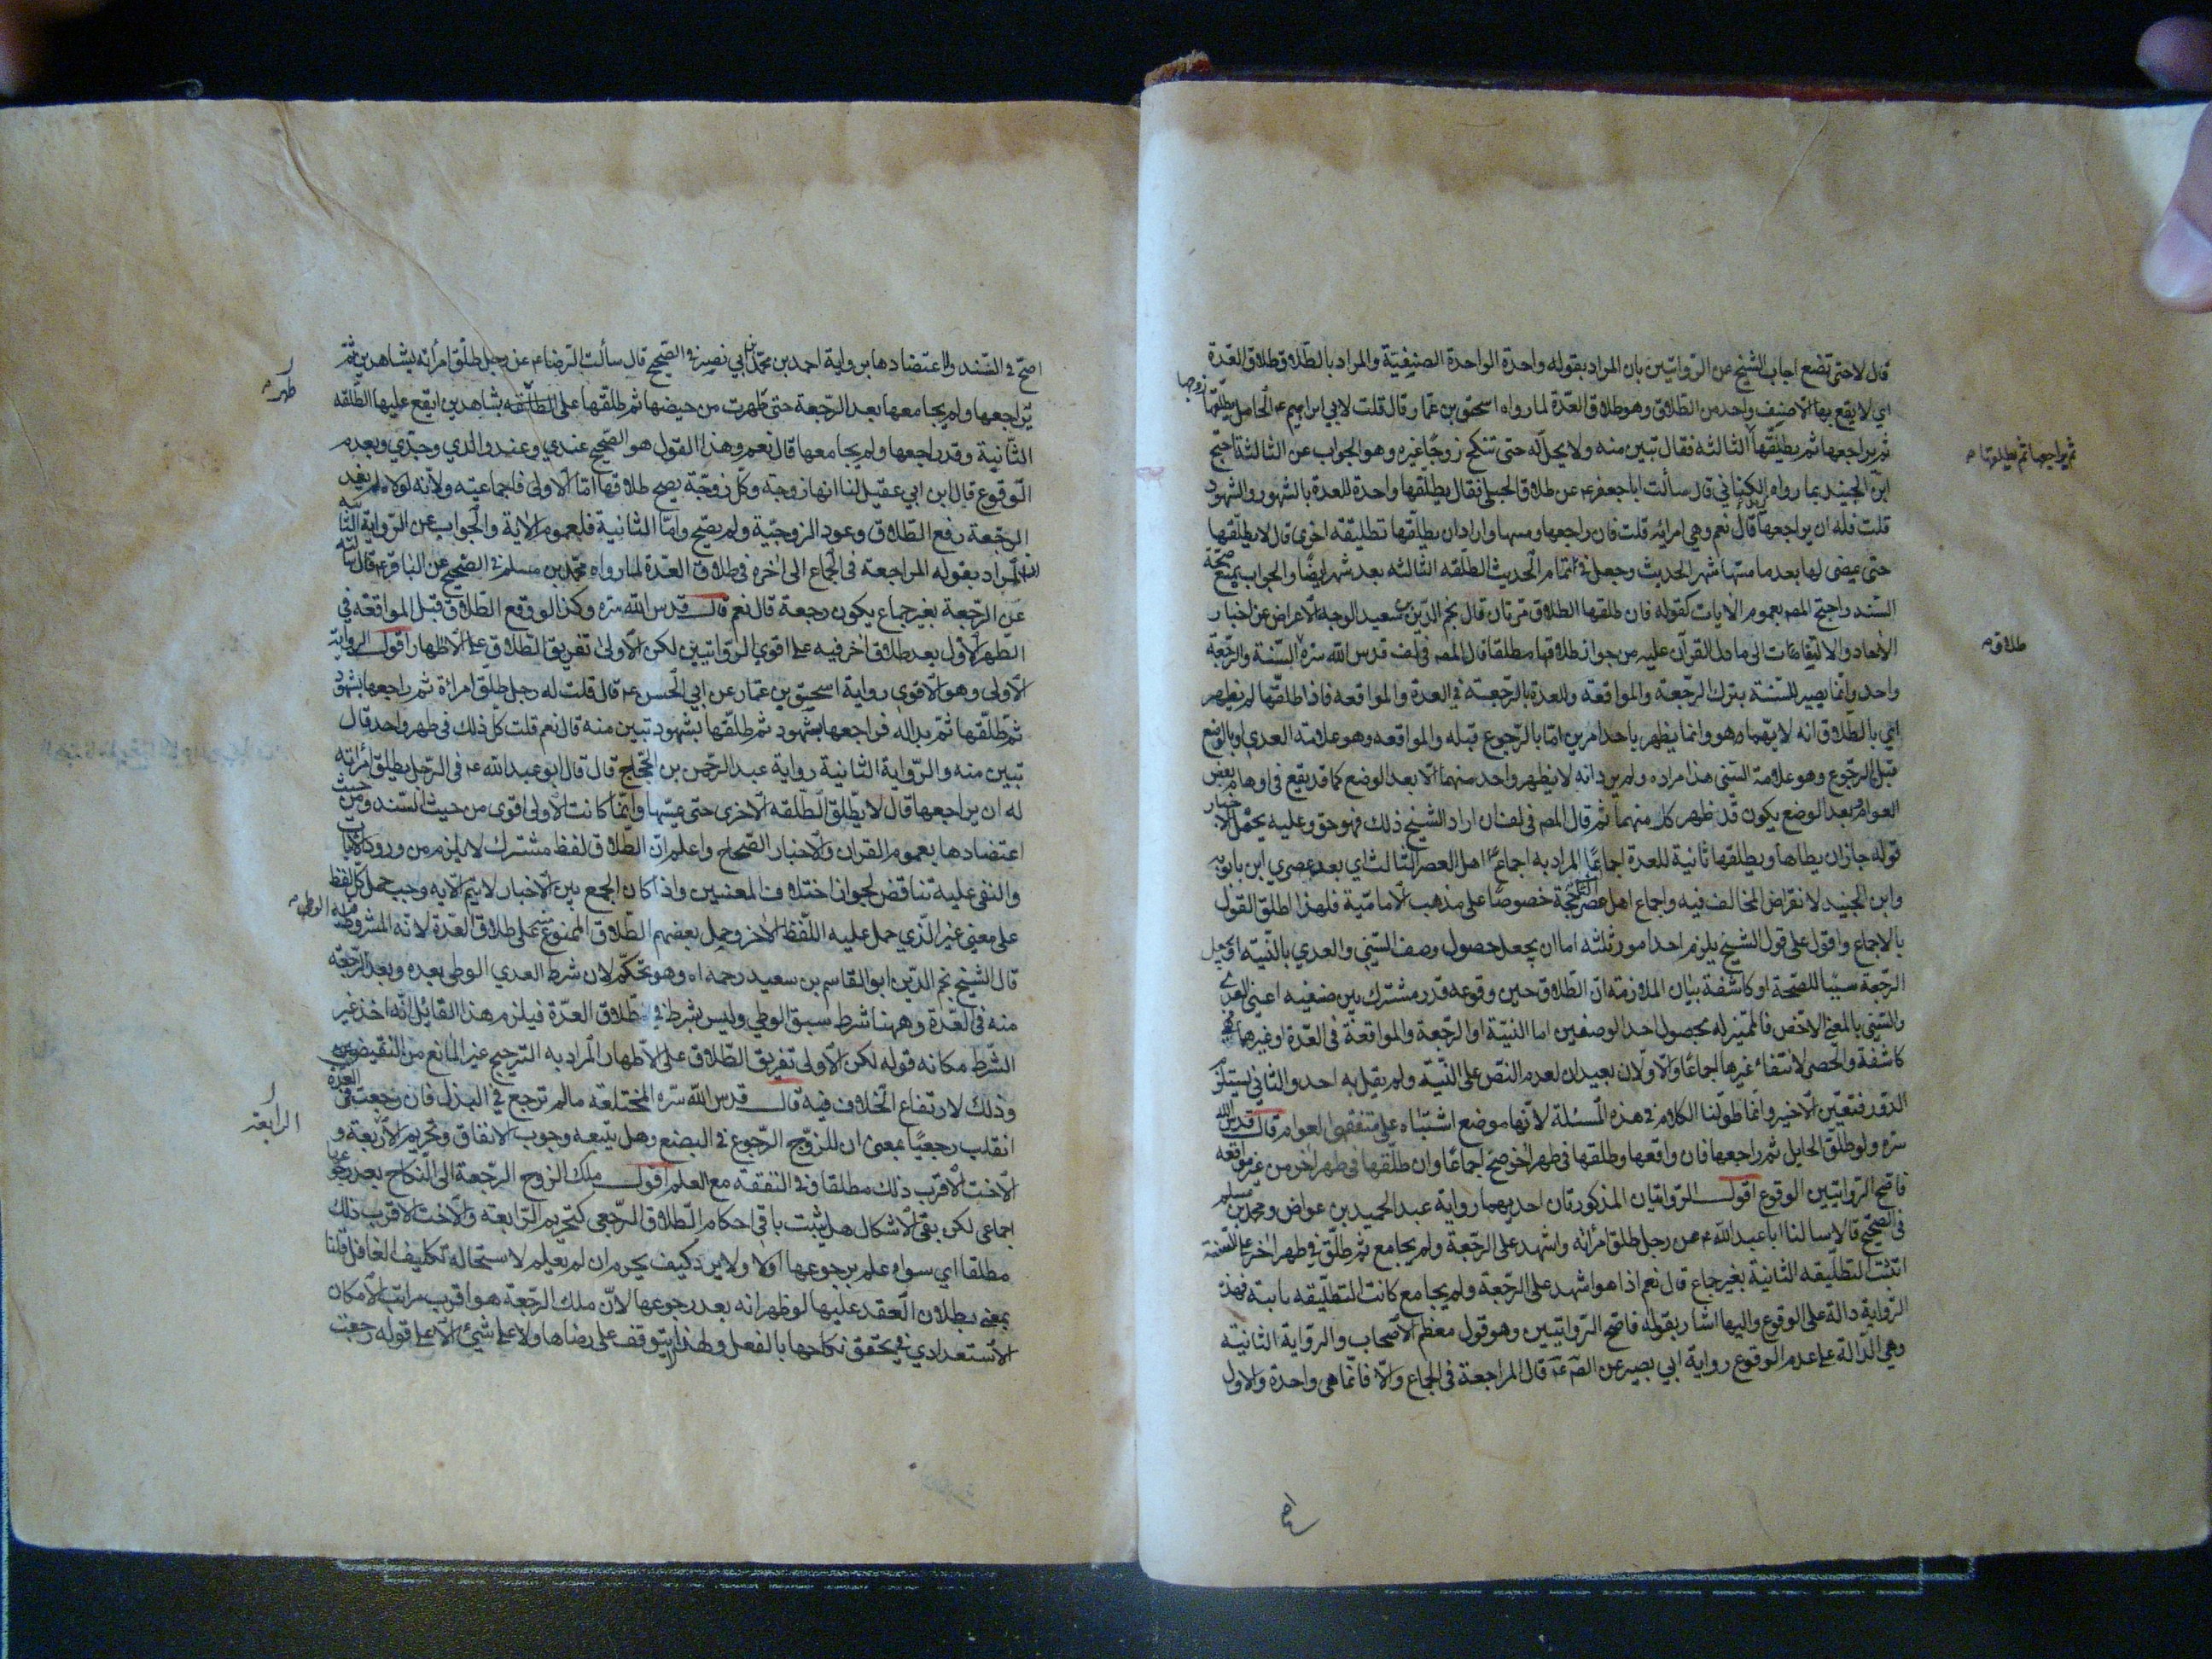 قال لا حتى تضع اجاب الشيخ عن الروايتين بان المراد بقوله واحدة الواحدة الصنفية والمراد بالطلاق طلاق العدة
اي لا يقع بها الا صنف واحد من الطلاق وهو طلاق العدة لما رواه اسحق بن عمار قال قلت لابي ابراهيم ع الحامل يطلقها زوجها
ثم يراجعها ثم يطلقها الثالثه فقال تبين منه ولا يحل له حتى تنكح زوجا غيره وهو الجواب عن الثالثة احتج
ثم يراجعها ثم يطلقها م
ابن الجنيد بما رواه الكناني قال سألت ابا جعفر ع عن طلاق الحبلى فقال يطلقها واحدة للعدة بالشهور والشهود
قلت فله ان يراجعها قال نعم وهي امراته قلت فان راجعها ومسها واراد ان يطلقها تطليقة اخرى قال لا يطلقها
حتى يمضى لها بعد ما مسها شهر الحديث وجعل في اتمام الحديث الطلقه الثالثه بعد شهر ايضا والجواب بمنع صحة
السند واحتج المصـ بعموم الايات كقوله فان طلقها الطلاق مرتان قال نجم الدين بن سعيد الوجه الاعراض عن اخبار
الآحاد والالتفات الى ما دل القرآن عليه من جواز طلاقها مطلقا قال المصـ في لف قدس الله سره السنة والرجعة
طلاق م
واحد وانما يصير للسنة بترك الرجعة والمواقعة وللعدة بالرجعة في العدة والمواقعه فاذا طلقها لم يظهر
اي بالطلاق انه لايهما هو وانما يظهر باحد امرين اما بالرجوع قبله والمواقعه وهو علامة العدي او بالوضع
قبل الرجوع وهو علامة السني هذا مراده ولم يرد انه لا يظهر واحد منهما الا بعد الوضع كما قد يقع في اوهام بعض
العوام وبعد الوضع يكون قد ظهر كل منهما ثم قال المصـ في لف ان اراد الشيخ ذلك فهو حق وعليه يحمل الاخبار
قوله جاز ان يطاها ويطلقها ثانية للعدة اجماعا المراد به اجماع اهل العصر الثالث اي بعد عصري ابن بابويه
وابن الجنيد لانقراض المخالف فيه واجماع اهل عصر حجة خصوصا على مذهب الامامية فلهذا اطلق القول
بالاجماع واقول على قول الشيخ يلزم احد امور ثلثه اما ان يجعل حصول وصف السني والعدي بالنيته او يجعل
الرجعة سببا للصحة او كاشفة بيان الملازمة ان الطلاق حين وقوعه قدر مشترك بين صنفيه اعني العدي
والسني بالمعنى الاخص فالمميز له بحصول احد الوصفين اما النيّة او الرجعة والمواقعة في العدة او غيرها
كاشفة والحصر لانتفاء غيرها اجماعا والاولان بعيدان لعدم النص على النيّة ولم يقل به احد والثاني يستلزم
الدور فتعين الاخير وانما طولنا الكلام في هذه المسئلة لانها موضع اشتباه على متفقهي العوام قال قدس الله
سره ولو طلق الحايل ثم راجعها فان واقعها وطلقها في طهر اخر صح اجماعا وان طلقها في طهر اخر من غير مواقعه
فاصح الروايتين الوقوع اقول الروايتان المذكورتان احديهما رواية عبد الحميد بن عواض ومحمد بن مسلم
في الصحيح قالا سالنا ابا عبد الله ع عن رجل طلق امرأته واشهد على الرجعة ولم يجامع ثم طلق في طهر اخر على السنة
اتثبت التطليقه الثانية بغير جماع قال نعم اذا هو اشهد على الرجعة ولم يجامع كانت التطليقه ثابتة فهذه
الرواية دالة على الوقوع واليها اشار بقوله فاصح الروايتين وهو قول معظم الاصحاب والرواية الثانيه
وهي الدالة على عدم الوقوع رواية ابي بصير عن الصـ ع قال المراجعة في الجماع والا فانما هي واحدة والاول
اصح في السند ولاعتضادها برواية احمد بن محمد بن ابي نصير في الصحيح قال سألت الرضا ع عن رجل طلق امرأته بشاهدين ثم
يراجعها ولم يجامعها بعد الرجعة حتى طهرت من حيضها ثم طلقها على الطلقه بشاهدين ايقع عليها الطلقه
طهر م
الثانية وقد راجعها ولم يجامعها قال نعم وهذا القول هو الصحيح عندي وعند والدي وجدي وبعدم
الوقوع قال ابن ابي عقيل لنا انها زوجة وكل زوجة يصح طلاقها اما الاولى فاجماعيّه ولانه لولاه لم يفد
الرجعة رفع الطلاق وعود الزوجية ولم يصح واما الثانية فلعموم الاية والجواب عن الرواية الثانية
ان المراد بقوله المراجعة في الجماع الى اخره في طلاق العدة لما رواه محمد بن مسلم في الصحيح عن الباقر ع قال سألته
عن الرجعة بغير جماع يكون رجعة قال نعم قال قدس الله سره وكذا لو وقع الطلاق قبل المواقعة في
الطهر الاول بعد طلاق اخر فيه على اقوي الروايتين لكن الاولى تفريق الطلاق على الاطهار اقول الرواية
الاولى وهو الاقوى رواية اسحق بن عمار عن ابي الحسن ع قال قلت له رجل طلق امرأة ثم راجعها بشهود
ثم طلقها ثم بدا له فراجعها بشهود ثم طلقها بشهود تبين منه قال نعم قلت كل ذلك في طهر واحد قال
تبين منه والرواية الثانية رواية عبد الرحمن بن الحجاج قال قال ابو عبد الله ع في الرجل يطلق امرأته
له ان يراجعها قال لا يطلق الطلقه الاخرى حتى يمسها وانما كانت الاولى اقوى من حيث السند ومن حيث
اعتضادها بعموم القران والاخبار الصحاح واعلم ان الطلاق لفظ مشترك لا يلزم من ورود الايجاب
والنفي عليه تناقض لجواز اختلاف المعنيين واذا كان الجمع بين الاخبار لا يتم الا به وجب حمل كل لفظ
على معنى غير الذي حمل عليه اللفظ الاخر وحمل بعضهم الطلاق الممنوع منه على طلاق العدة لانه المشروط فيه الوطي م
قال الشيخ نجم الدين ابو القاسم بن سعيد رحمه اه وهو تحكم لان شرط العدي الوطي بعده وبعد الرجعة
منه في العدة وههنا شرط سبق الوطي وليس بشرط في طلاق العدة فيلزم هذا القايل انه اخذ غير
الشرط مكانه قوله لكن الاولى تفريق الطلاق على الاطهار المراد به الترجيح غير المانع من النقيض
وذلك لارتفاع الخلاف فيه قال قدس الله سره المختلعة ما لم ترجع في البذل فان رجعت في العدة
انقلب رجعيا بمعنى ان للزوج الرجوع في البضع وهل يتبعه وجوب الانفاق وتحريم الاربعة و
الرابعة
الاخت الاقرب ذلك مطلقا وفي النفقه مع العلم اقول ملك الزوج الرجعة الى النكاح بعد رجوعها
اجماعى لكن بقي الاشكال هل يثبت باقي احكام الطلاق الرجعي كتحريم الرابعة والاخت الاقرب ذلك
مطلقا اي سواء علم برجوعها اولا ولا يرد كيف يحرم ان لم يعلم لاستحالة تكليف الغافل قلنا
بمعنى بطلان العقد عليها لو ظهر انه بعد رجوعها لان ملك الرجعة هو اقرب مراتب الامكان
الاستعدادي في تحقق نكاحها بالفعل ولهذا لا يتوقف على رضاها ولا على شيئ الا على قوله رجعت